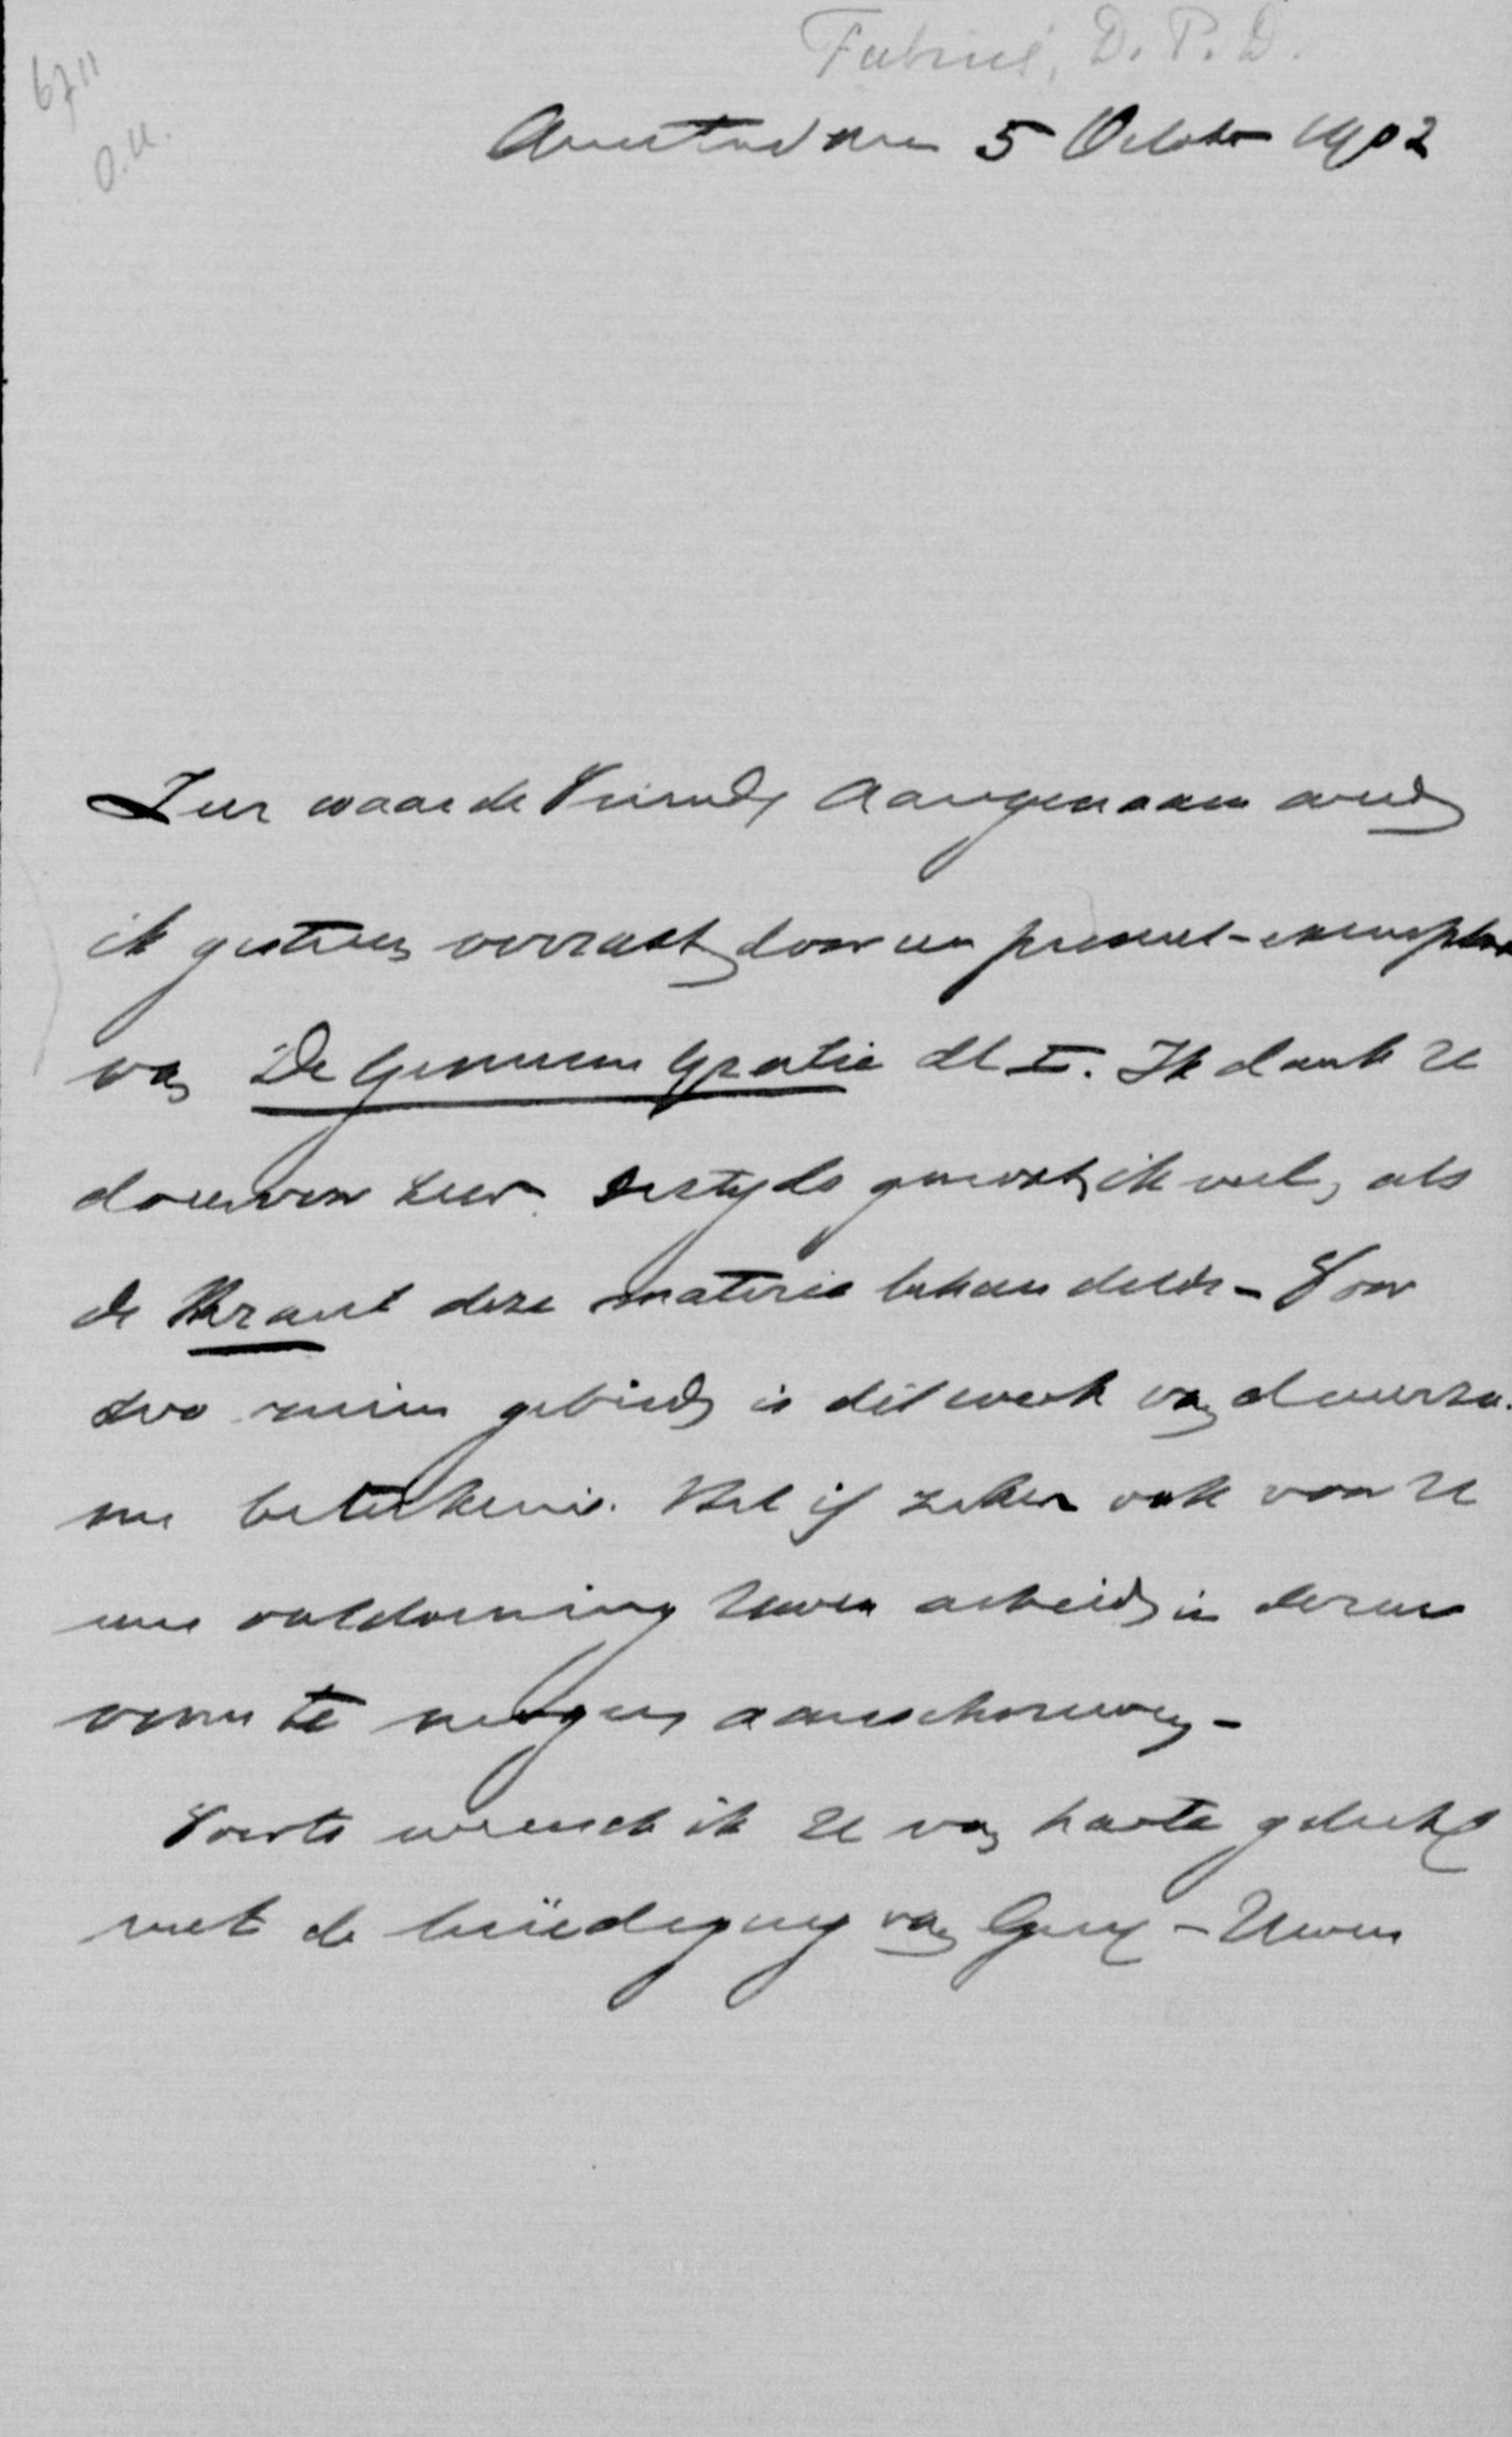 6711
O.U.
Fabius, D.P.D.
Amsterdam 5 October 1902
Zeer waarde Vriend, Aangenaam werd
ik gisteren verrast door een present-exemplaar
van De Gemeene Gratie dl I. Ik dank U
daarvoor zeer. Destyds genoot ik veel, als
de Heraut deze materie behandelde - Voor
zoo ruim gebied is dit werk van duurza-
me beteekenis. Het is zeker ook voor U
eene voldoening Uwen arbeid in dezen
vorm te mogen aanschouwen -
Voorts wensch ik U van harte geluk
met de beëediging van Guy - Uwen